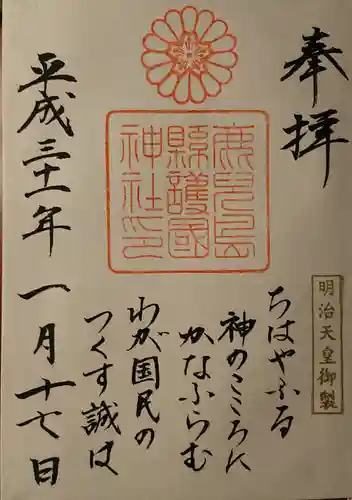 奉拝
明治天皇御製
ちはやふる
神のこころに
かなふらむ
わが国民の
つくす誠は
鹿児島
縣護國
神社印
平成三十一年一月十七日